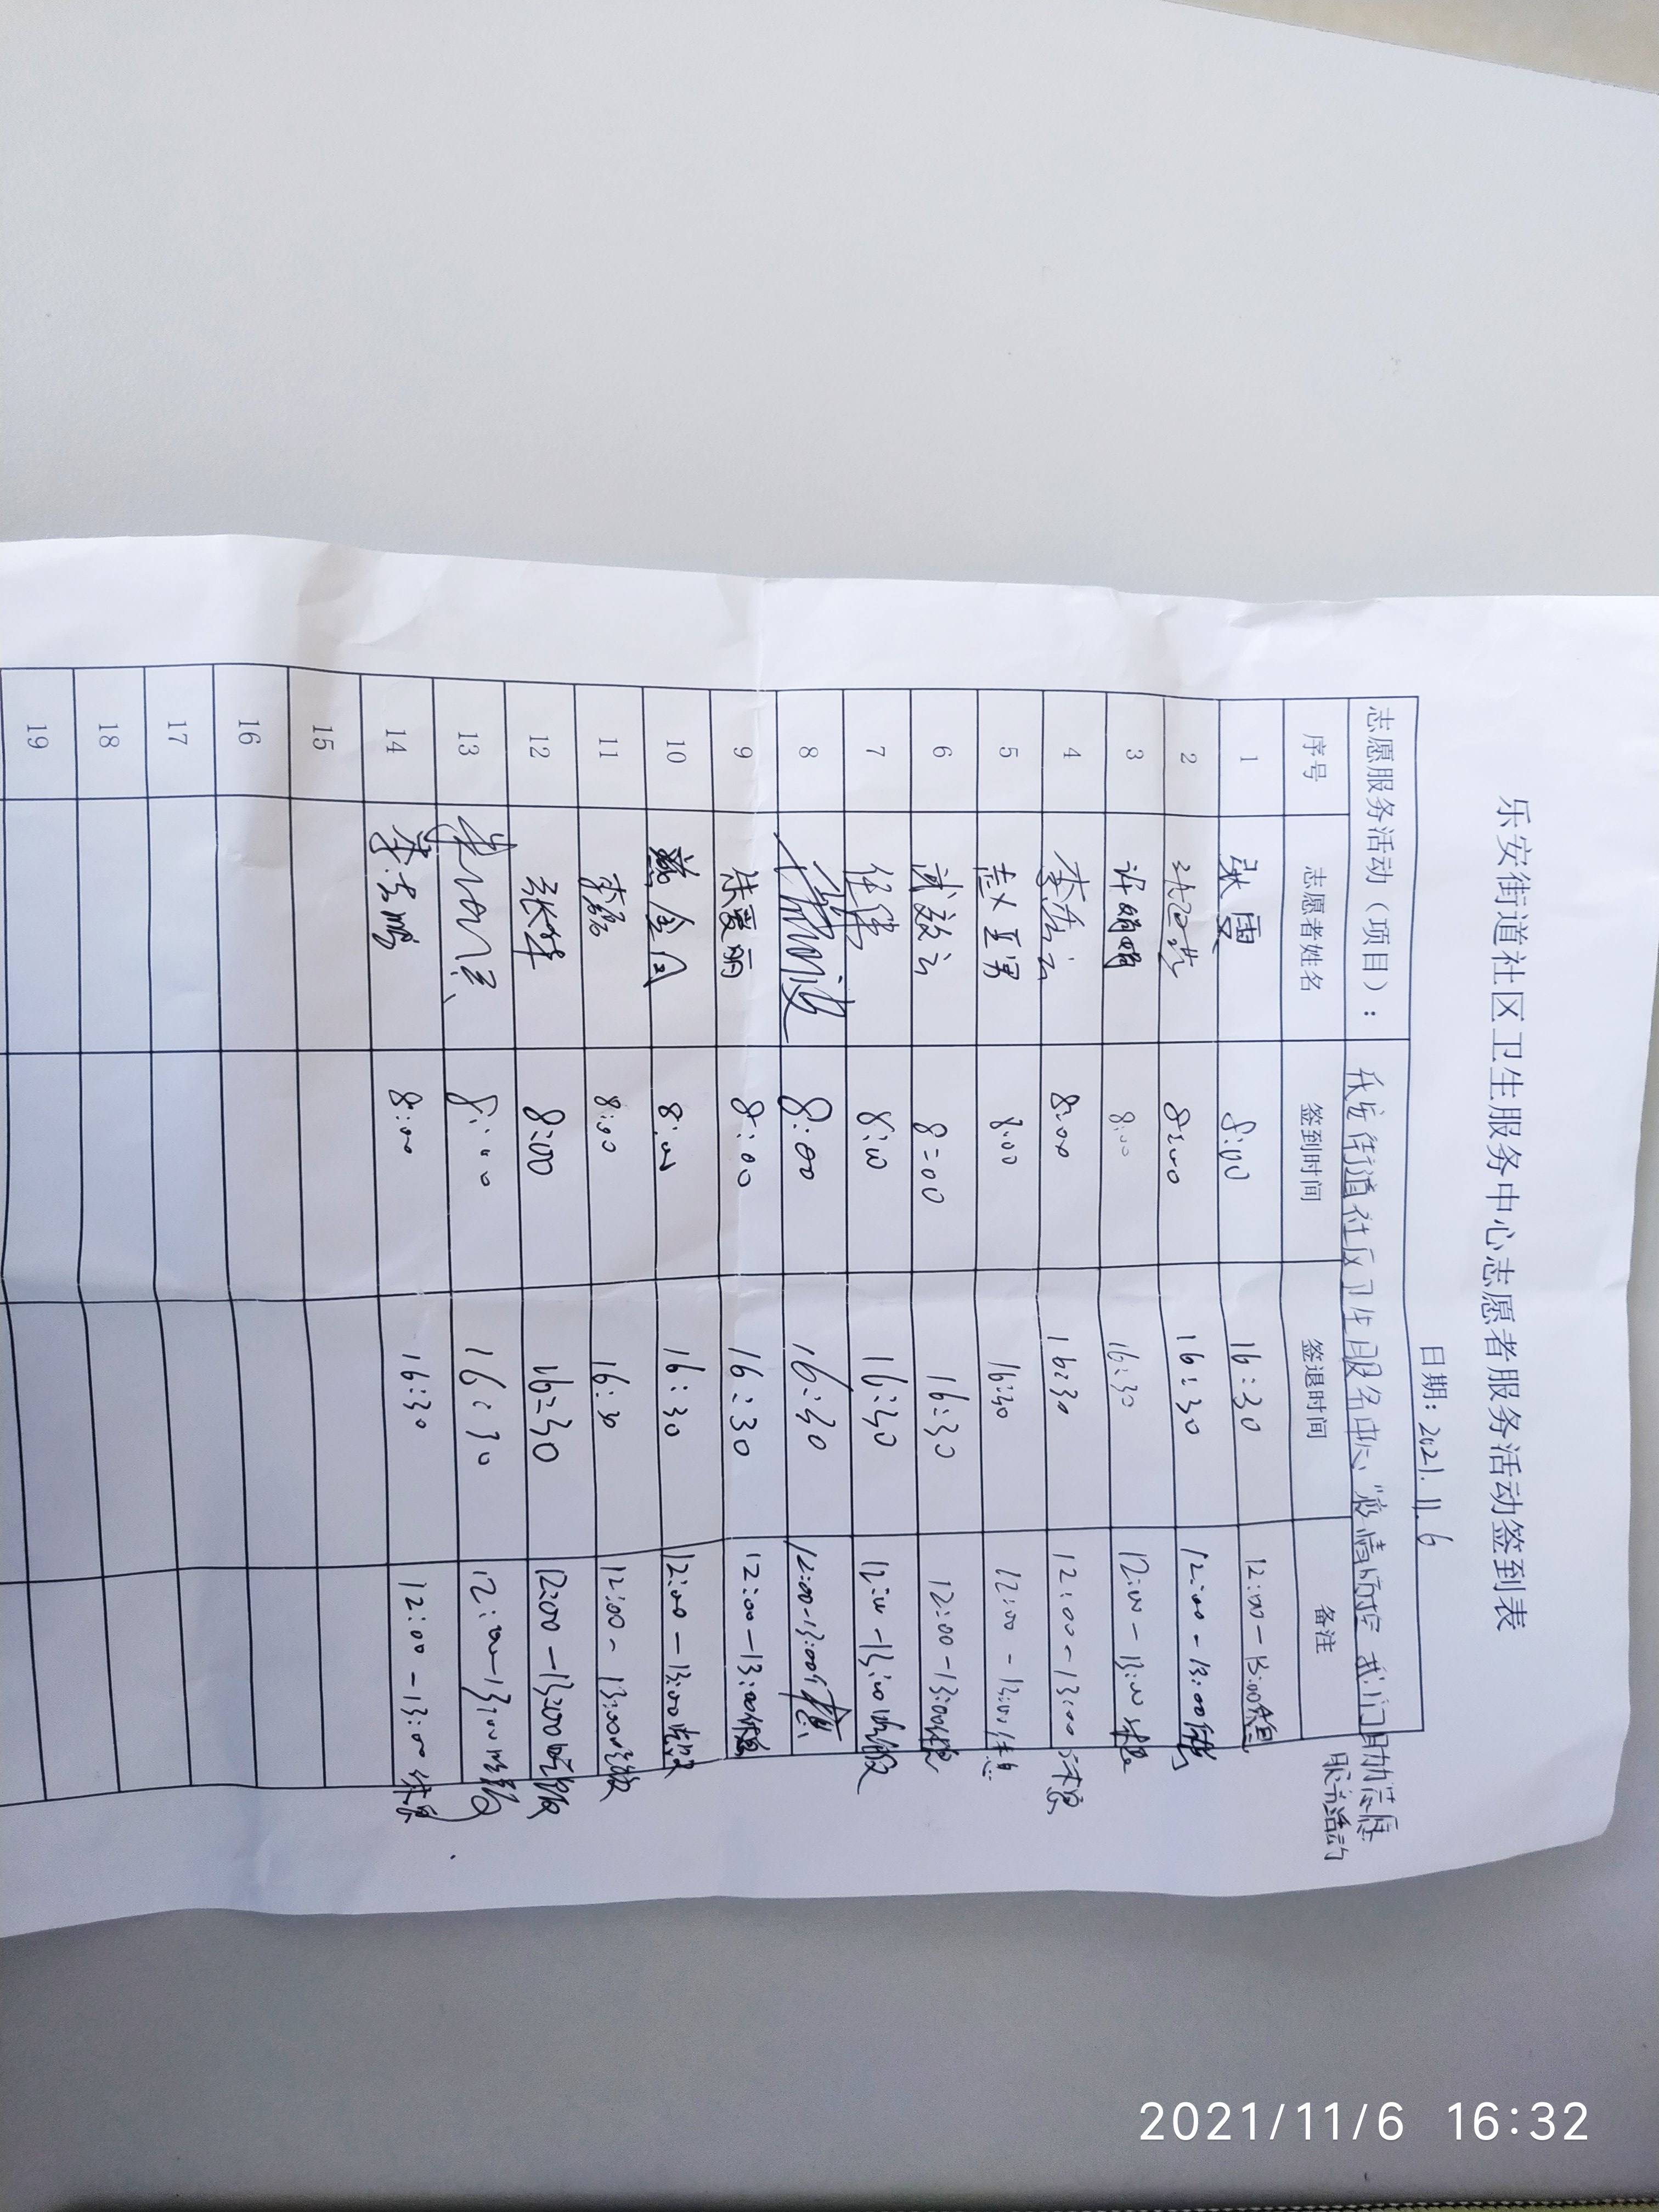 乐安街道社区卫生服务中心志愿者服务活动签到表
日期：2021.11.6
志愿服务活动（项目）： 乐安街道社区卫生服务中心“疫情防控 我们同助”志愿
服务活动
序号 志愿者姓名 签到时间 签退时间 备注
1 张雯 8:00 16:30 12:00-13:00休息
2 8:00 16:30 12:00-13:00休息
3 许娟娟 8:00 16:30 12:00-13:00休息
4 8:00 16:30 12:00-13:00休息
5 赵亚男 8:00 16:30 12:00-13:00休息
6 8:00 16:30 12:00-13:00休息
7 任伟 8:00 16:30 12:00-13:00
8 8:00 16:30 12:00-13:00休息
9 朱爱丽 8:00 16:30 12:00-13:00休息
10 8:00 16:30 12:00-13:00
11 李磊 8:00 16:30 12:00-13:00
12 张华 8:00 16:30 12:00-13:00
13 8:00 16:30 12:00-13:00
14 8:00 16:30 12:00-13:00休息
15
16
17
18
19
2021/11/6 16:32